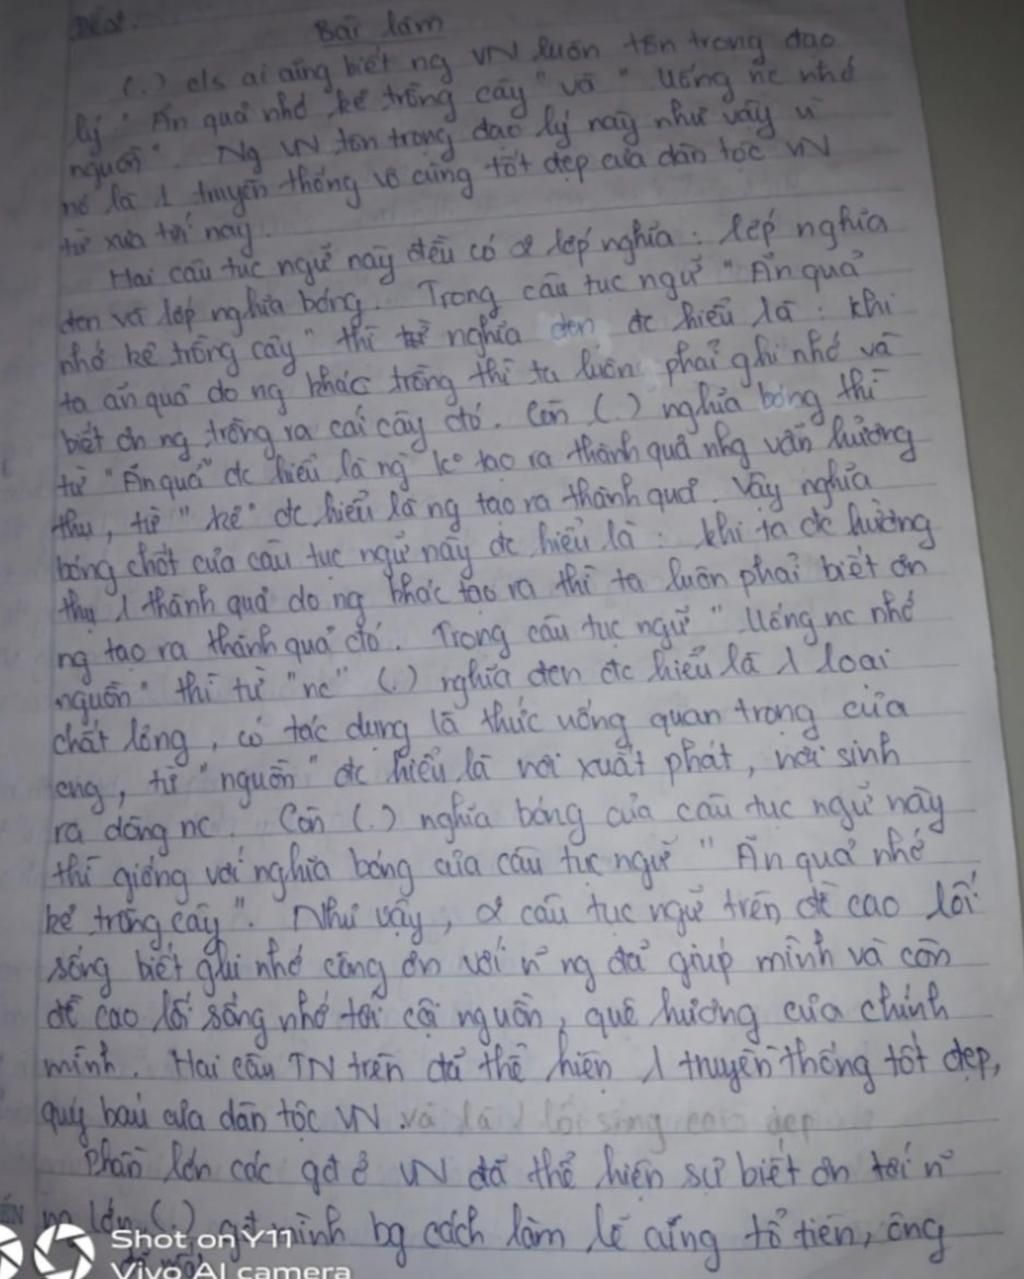 Bài làm
(.) c/s ai cũng biết ng VN luôn tôn trọng đạo
lý "Ăn quả nhớ kẻ trồng cây" và "Uống nc nhớ
nguồn". Ng VN tôn trọng đạo lý này như vậy vì
nó là 1 truyền thống vô cùng tốt đẹp của dân tộc VN
từ xưa tới nay.
Hai câu tục ngữ này đều có 2 lớp nghĩa: lớp nghĩa
đen và lớp nghĩa bóng. Trong câu tục ngữ "Ăn quả
nhớ kẻ trồng cây" thì nghĩa đen đc hiểu là: khi
ta ăn quả do ng khác trồng thì ta luôn phải ghi nhớ và
biết ơn ng trồng ra cái cây đó. Còn (.) nghĩa bóng thì
từ "Ăn quả" đc hiểu là ng ko tạo ra thành quả nhg vẫn hưởng
thụ, từ "kẻ" đc hiểu là ng tạo ra thành quả. Vậy nghĩa
bóng chốt của câu tục ngữ này đc hiểu là: khi ta đc hưởng
thụ 1 thành quả do ng khác tạo ra thì ta luôn phải biết ơn
ng tạo ra thành quả đó. Trong câu tục ngữ "Uống nc nhớ
nguồn" thì từ "nc" (.) nghĩa đen đc hiểu là 1 loại
chất lỏng, có tác dụng là thức uống quan trọng của
cng, từ "nguồn" đc hiểu là nơi xuất phát, nơi sinh
ra dòng nc. Còn (.) nghĩa bóng của câu tục ngữ này
thì giống với nghĩa bóng của câu tục ngữ "Ăn quả nhớ
kẻ trồng cây". Như vậy, 2 câu tục ngữ trên đề cao lối
sống biết ghi nhớ công ơn với n~ ng đã giúp mình và còn
đề cao lối sống nhớ tới cội nguồn, quê hương của chính
mình. Hai câu TN trên đã thể hiện 1 truyền thống tốt đẹp,
quý báu của dân tộc VN và là 1 lối sống cao đẹp
Phần lớn các gđ ở VN đã thể hiện sự biết ơn tới n~
ng lớn (.) gđ mình bg cách làm lễ cúng tổ tiên, ông
Shot on Y11
Vivo AI camera